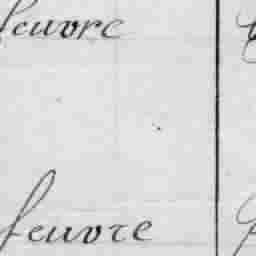 feuvre
feuvre